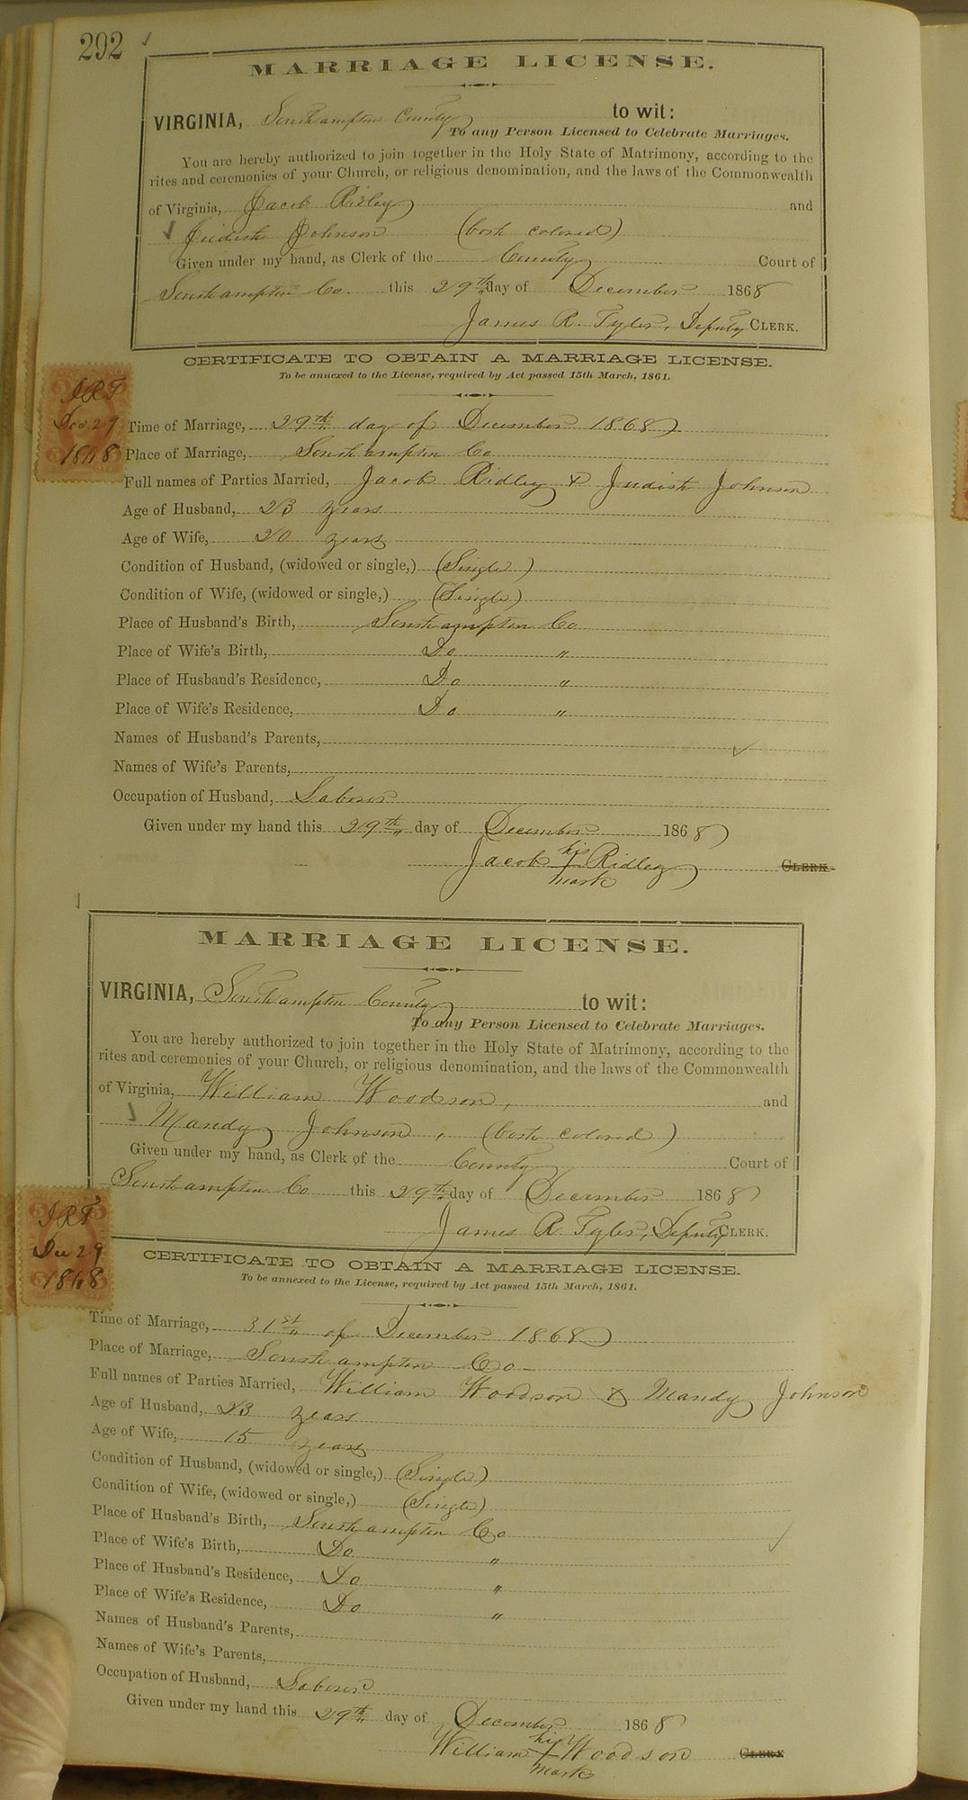 292
MARRIAGE LICENSE.
VIRGINIA, Southampton County to wit:
To any Person Licensed to Celebrate Marriages.
You are hereby authorized to join together in the Holy State of Matrimony, according to the
rites and ceremonies of your Church, or religious denomination, and the laws of the Commonwealth
of Virginia, Jacob Ridley and
Judith Johnson (both colored)
Given under my hand, as Clerk of the County Court of
Southampton Co. this 29th day of December 1868
James R. Tyler, Deputy CLERK.
CERTIFICATE TO OBTAIN A MARRIAGE LICENSE.
To be annexed to the License, required by Act passed 15th March, 1861.
JRT
Dec 29
1868
Time of Marriage, 29th day of December 1868
Place of Marriage, Southampton Co
Full names of Parties Married, Jacob Ridley & Judith Johnson
Age of Husband, 23 years
Age of Wife, 20 years
Condition of Husband, (widowed or single,) (Single)
Condition of Wife, (widowed or single,) (Single)
Place of Husband's Birth, Southampton Co
Place of Wife's Birth, Do "
Place of Husband's Residence, Do "
Place of Wife's Residence, Do "
Names of Husband's Parents,
Names of Wife's Parents,
Occupation of Husband, Laborer
Given under my hand this 29th day of December 1868
Jacob his Ridley CLERK.
mark
MARRIAGE LICENSE.
VIRGINIA, Southampton County to wit:
To any Person Licensed to Celebrate Marriages.
You are hereby authorized to join together in the Holy State of Matrimony, according to the
rites and ceremonies of your Church, or religious denomination, and the laws of the Commonwealth
of Virginia, William Woodson, and
Mandy Johnson, (both colored)
Given under my hand, as Clerk of the County Court of
Southampton Co this 29th day of December 1868
James R. Tyler, Deputy CLERK.
JRT
Dec 29
1868
CERTIFICATE TO OBTAIN A MARRIAGE LICENSE.
To be annexed to the License, required by Act passed 15th March, 1861.
Time of Marriage, 31st of December 1868
Place of Marriage, Southampton Co
Full names of Parties Married, William Woodson & Mandy Johnson
Age of Husband, 23 years
Age of Wife, 15 years
Condition of Husband, (widowed or single,) (Single)
Condition of Wife, (widowed or single,) (Single)
Place of Husband's Birth, Southampton Co
Place of Wife's Birth, Do "
Place of Husband's Residence, Do "
Place of Wife's Residence, Do "
Names of Husband's Parents,
Names of Wife's Parents,
Occupation of Husband, Laborer
Given under my hand this 29th day of December 1868
William his Woodson CLERK
mark